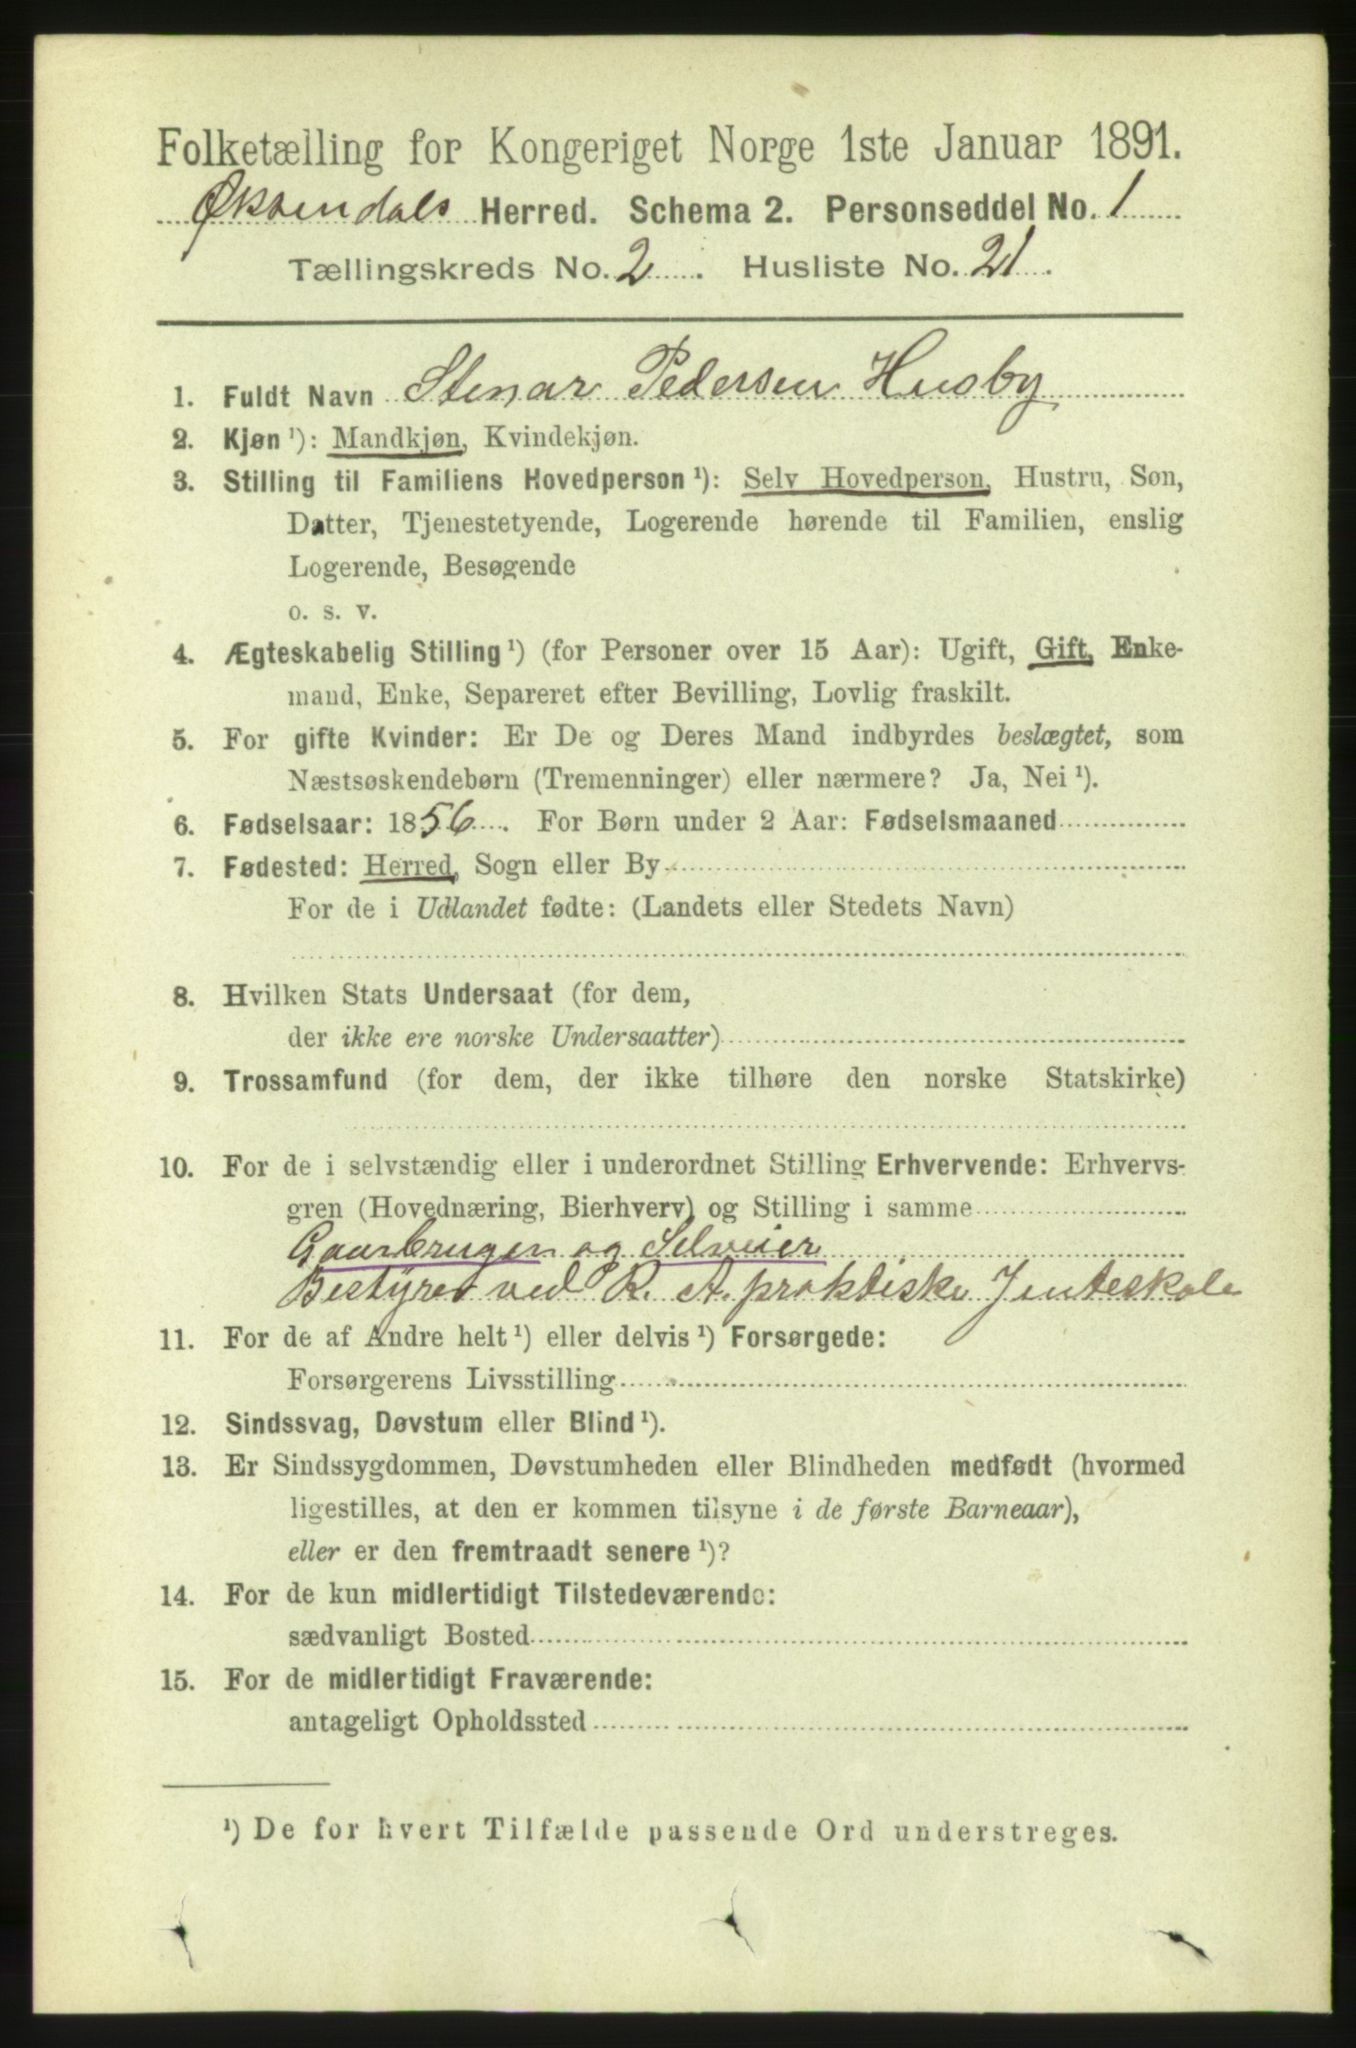 Folketælling for Kongeriget Norge 1ste Januar 1891.
Øksendals Herred. Schema 2. Personseddel No. 1
Tællingskreds No. 2. Husliste No. 21.
1. Fuldt Navn Stenar Pedersen Husby
2. Kjøn ¹): Mandkjøn, Kvindekjøn.
3. Stilling til Familiens Hovedperson ¹): Selv Hovedperson, Hustru, Søn,
Datter, Tjenestetyende, Logerende hørende til Familien, enslig
Logerende, Besøgende
o. s. v.
4. Ægteskabelig Stilling ¹) (for Personer over 15 Aar): Ugift, Gift, Enke-
mand, Enke, Separeret efter Bevilling, Lovlig fraskilt.
5. For gifte Kvinder: Er De og Deres Mand indbyrdes beslægtet, som
Næstsøskendebørn (Tremenninger) eller nærmere? Ja, Nei ¹).
6. Fødselsaar: 1856. For Børn under 2 Aar: Fødselsmaaned
7. Fødested: Herred, Sogn eller By
For de i Udlandet fødte: (Landets eller Stedets Navn)
8. Hvilken Stats Undersaat (for dem,
der ikke ere norske Undersaatter)
9. Trossamfund (for dem, der ikke tilhøre den norske Statskirke)
10. For de i selvstændig eller i underordnet Stilling Erhvervende: Erhvervs-
gren (Hovednæring, Bierhverv) og Stilling i samme
Gaarbrugen og Selveier
Bestyrer ved R. A. praktiske Jenteskole
11. For de af Andre helt ¹) eller delvis ¹) Forsørgede:
Forsørgerens Livsstilling
12. Sindssvag, Døvstum eller Blind ¹).
13. Er Sindssygdommen, Døvstumheden eller Blindheden medfødt (hvormed
ligestilles, at den er kommen tilsyne i de første Barneaar),
eller er den fremtraadt senere ¹)?
14. For de kun midlertidigt Tilstedeværende:
sædvanligt Bosted
15. For de midlertidigt Fraværende:
antageligt Opholdssted
¹) De for hvert Tilfælde passende Ord understreges.